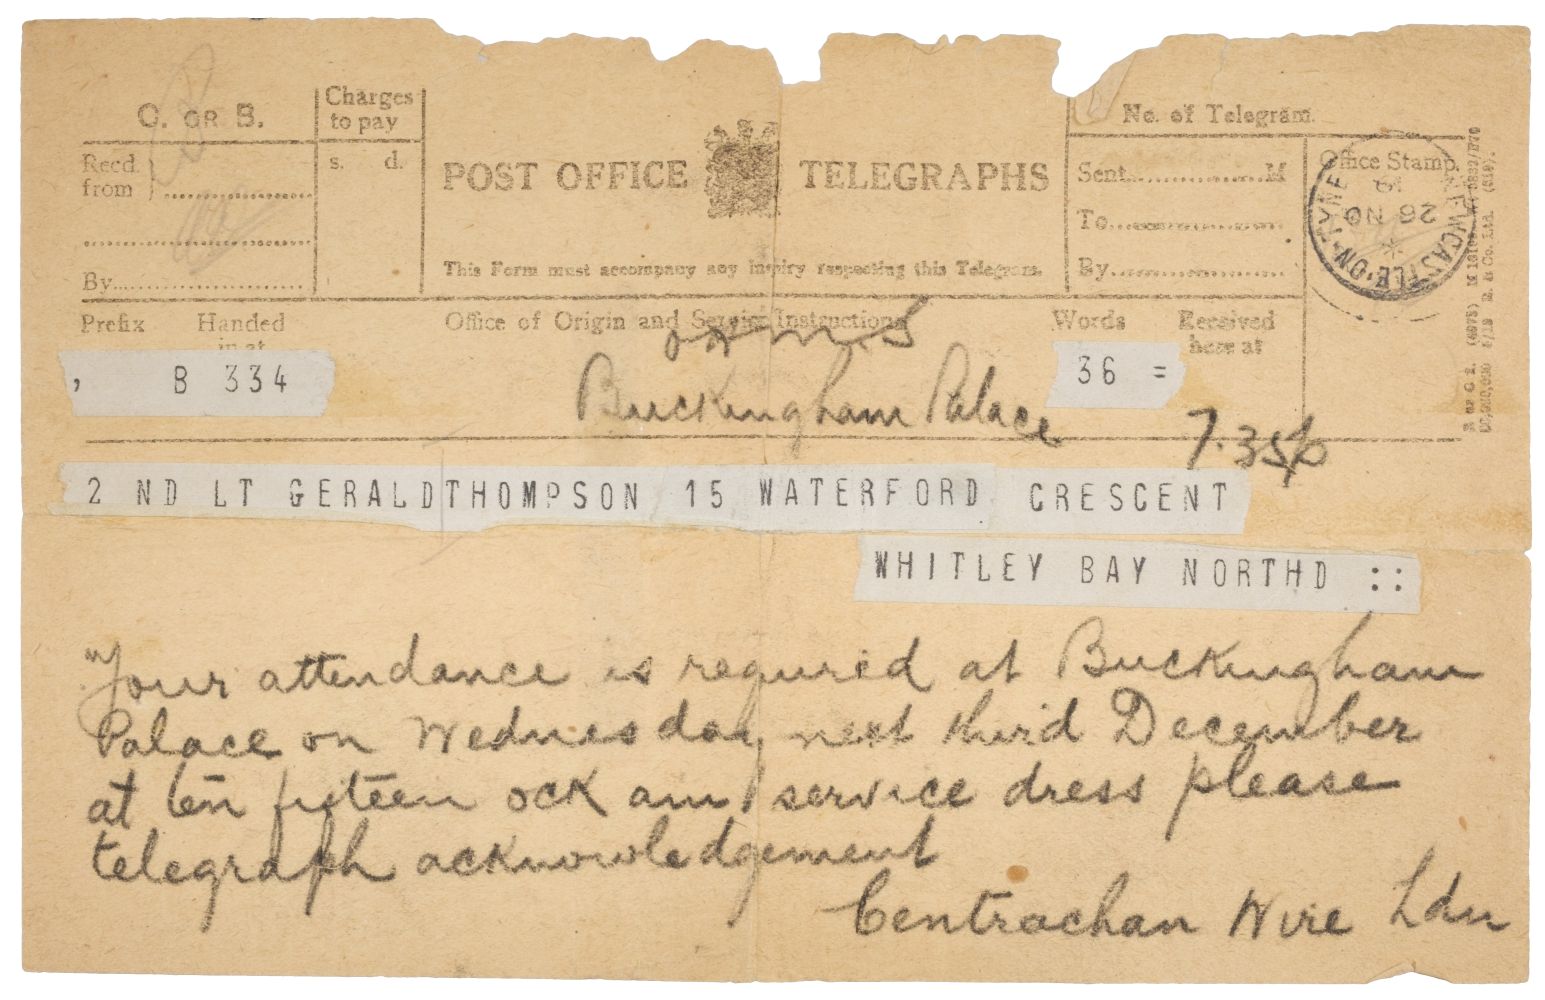 O. OR B.
Charges
to pay
No. of Telegram.
POST OFFICE TELEGRAPHS
Recd.
from
s. d.
Sent M
Office Stamp.
NEWCASTLE-ON-TYNE
26 NO
19
To
This Form must accompany any inquiry respecting this Telegram.
By
By
Prefix Handed
in at
Office of Origin and Service Instructions
Words Received
here at
OHMS
, B 334
Buckingham Palace
36 =
7.35p
2 ND LT GERALD THOMPSON 15 WATERFORD CRESCENT
WHITLEY BAY NORTHD ::
"Your attendance is required at Buckingham
Palace on Wednesday next third December
at ten fifteen ock am service dress please
telegraph acknowledgement
Centrachan Wire Ldn